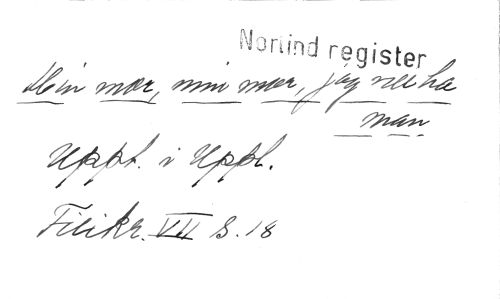 Norlind register
Min mor, min mor, jag vill ha
man.
Uppt. i Uppl.
VII S. 18